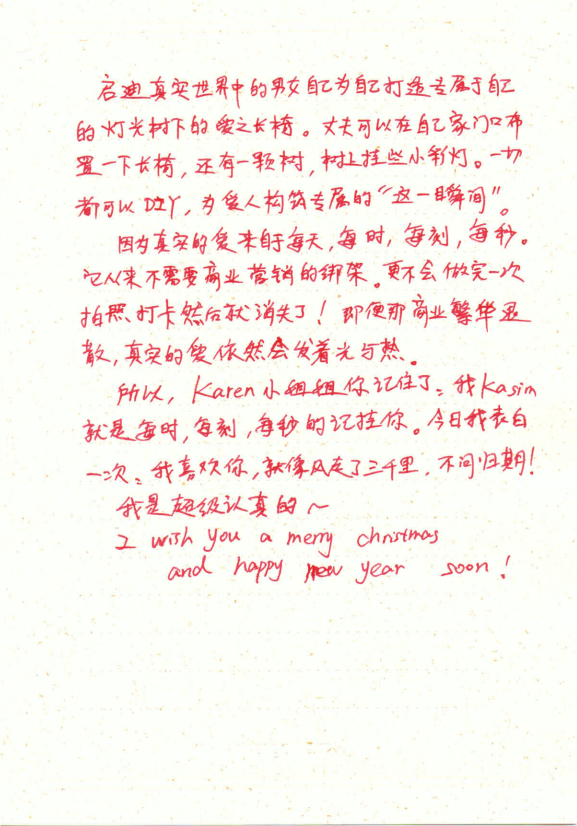 启迪真实世界中的男女自己为自己打造专属于自己
的灯光树下的爱之长椅。丈夫可以在自己家门口布
置一下长椅，还有一颗树，树上挂些小彩灯。一切
都可以DIY，为爱人构筑专属的“这一瞬间”。
因为真实的爱来自每天，每时，每刻，每秒。
它从来不需要商业营销的绑架。更不会做完一次
拍照打卡然后就消失了！即便那商业繁华退
散，真实的爱依然会发着光与热。
所以，Karen小姐姐你记住了：我Kasim
就是每时，每刻，每秒的记挂你。今日我表白
一次：我喜欢你，就像风走了三千里，不问归期！
我是超级认真的～
I wish you a merry christmas
and happy new year soon！